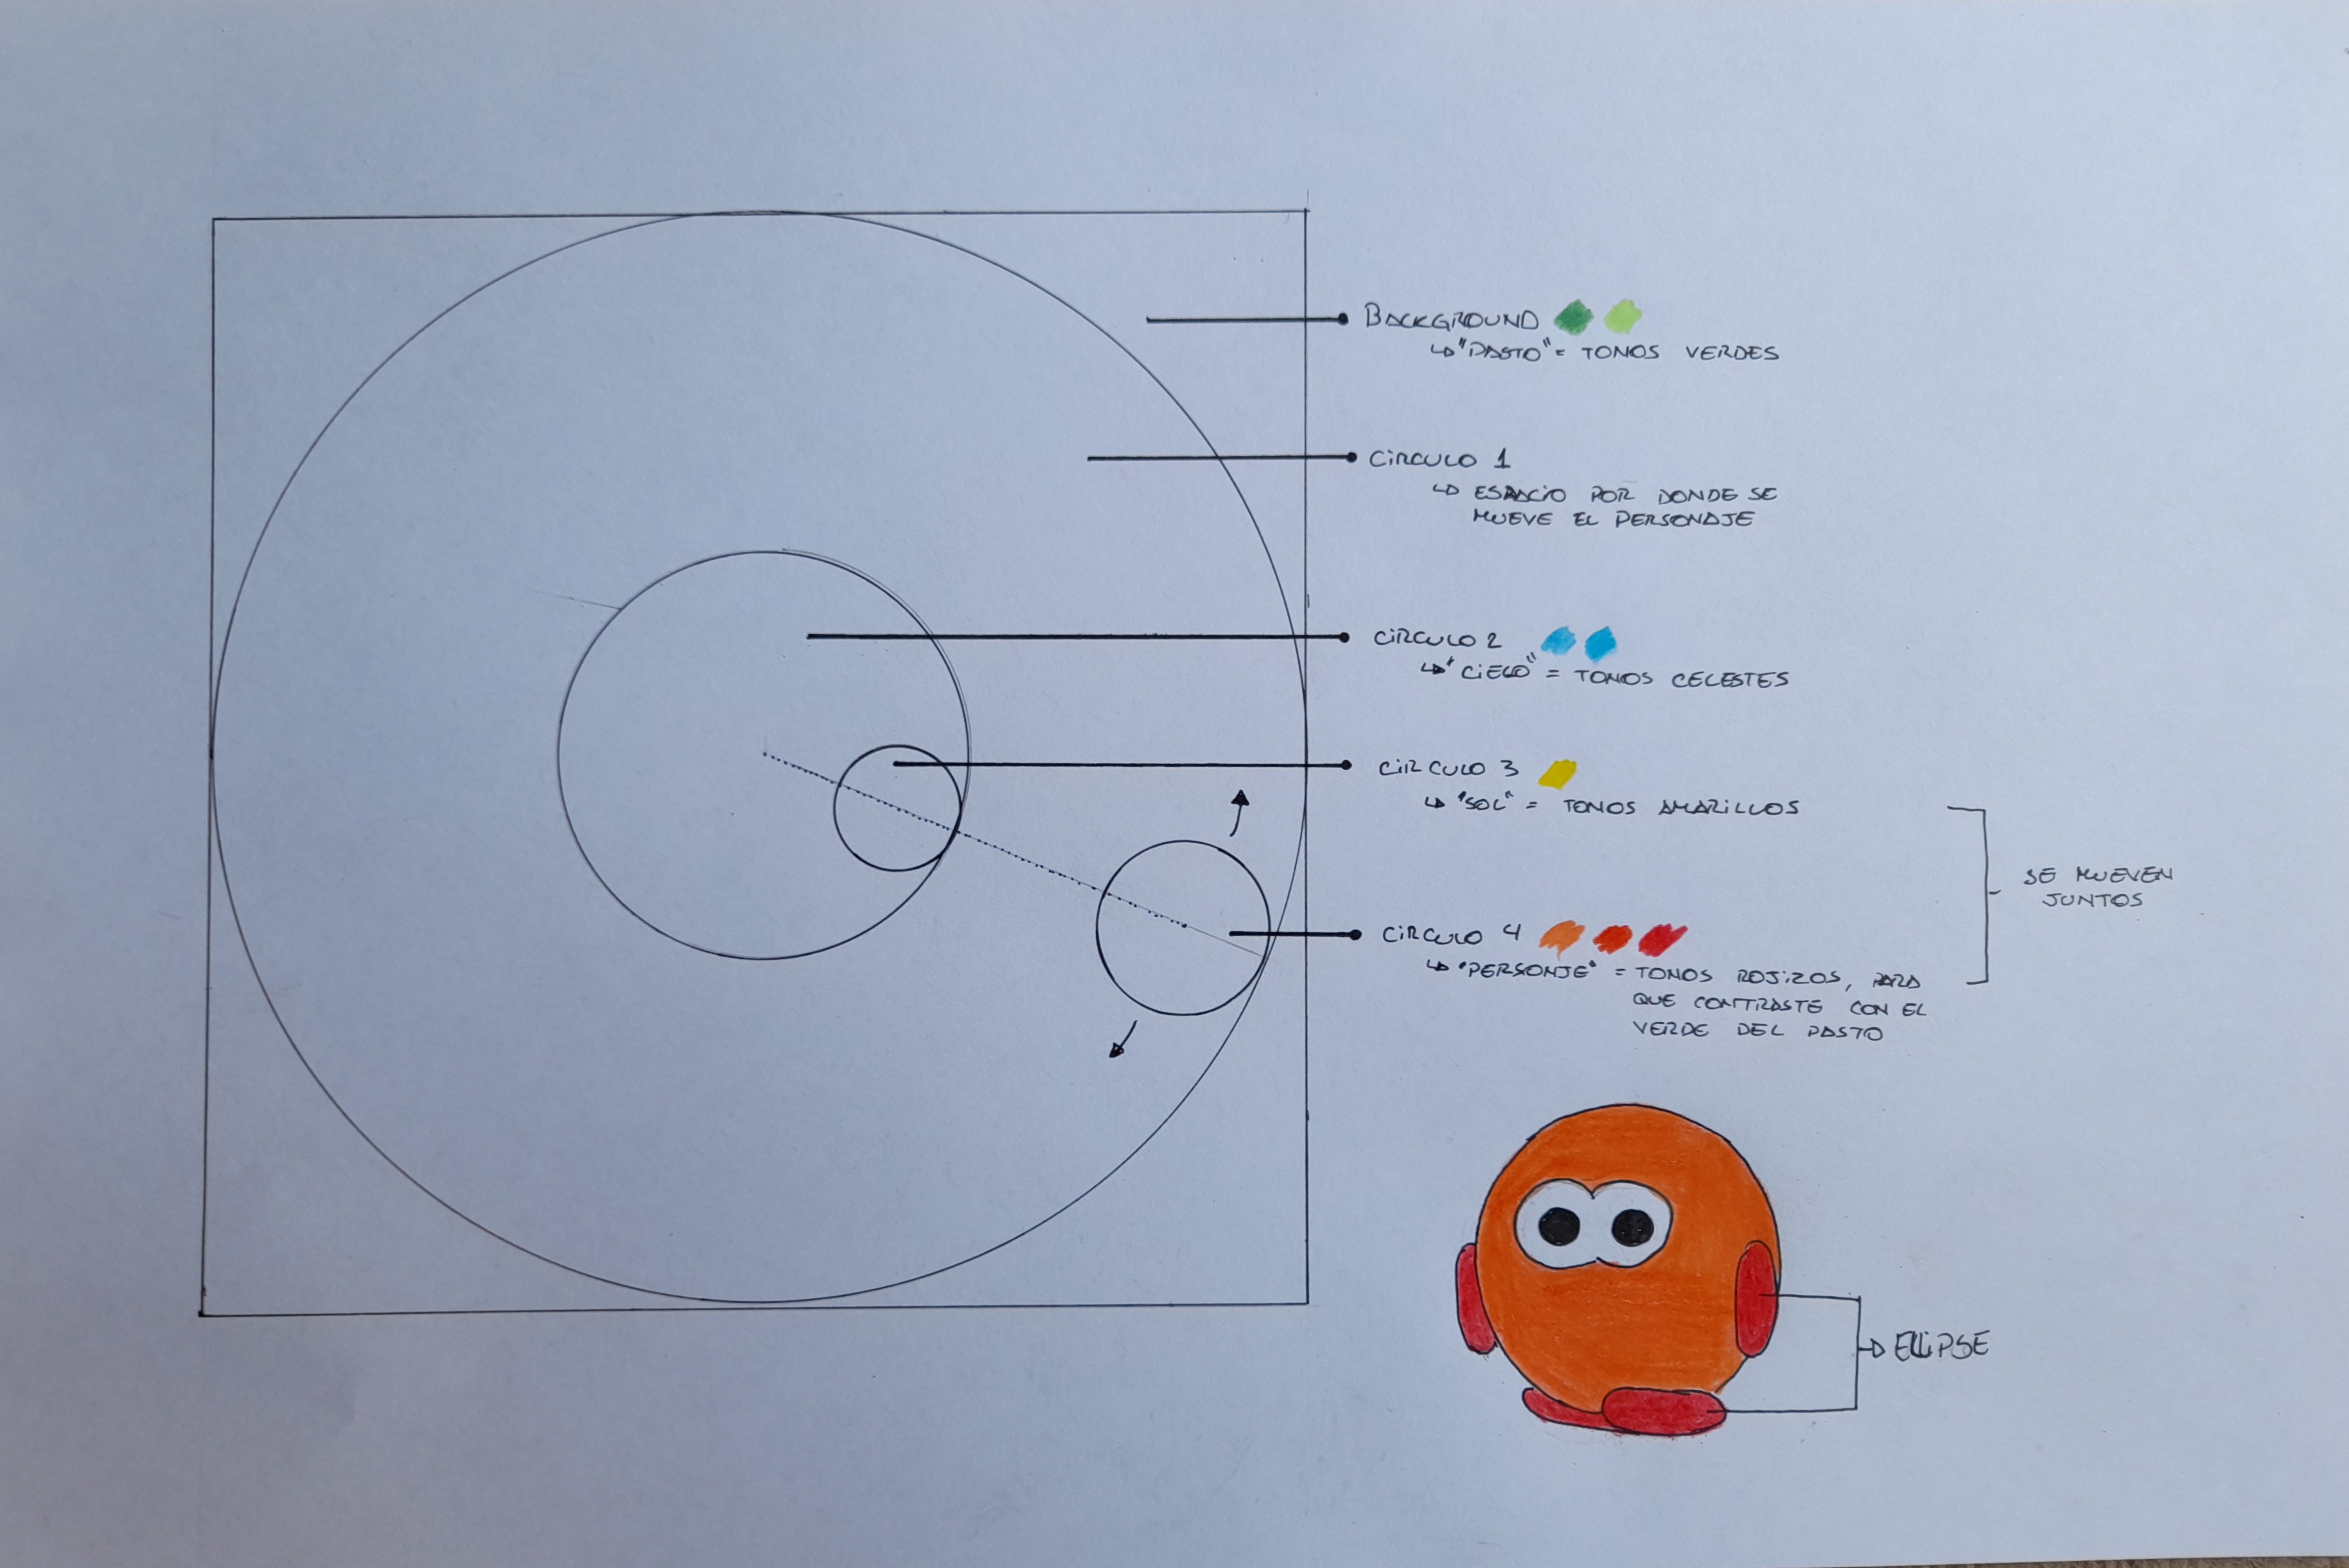 BACKGROUND
↳ "PASTO" = TONOS VERDES
CÍRCULO 1
↳ ESPACIO POR DONDE SE
MUEVE EL PERSONAJE
CÍRCULO 2
↳ "CIELO" = TONOS CELESTES
CÍRCULO 3
↳ "SOL" = TONOS AMARILLOS
SE MUEVEN
JUNTOS
CÍRCULO 4
↳ "PERSONJE" = TONOS ROJIZOS, PARA
QUE CONTRASTE CON EL
VERDE DEL PASTO
ELLIPSE